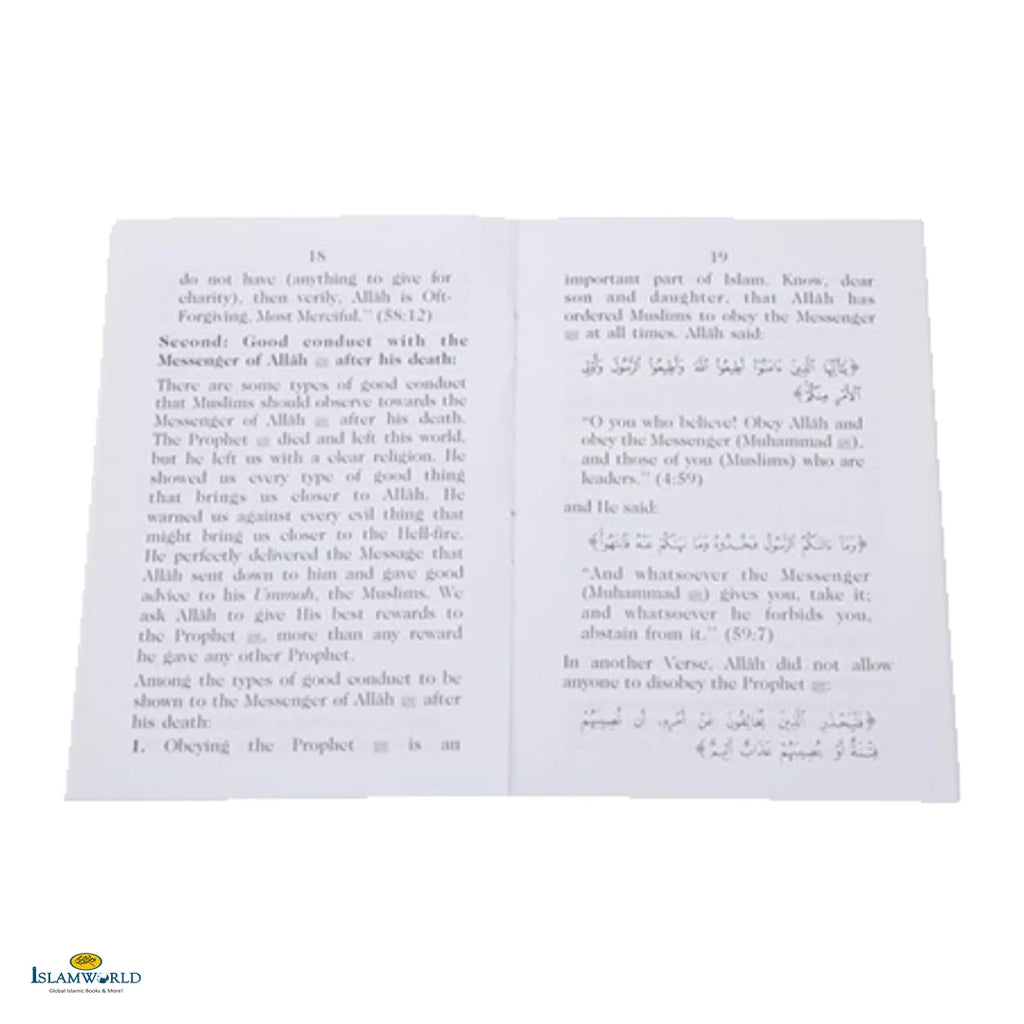 18
do not have (anything to give for
charity), then verily, Allâh is Oft-
Forgiving, Most Merciful.” (58:12)
Second: Good conduct with the
Messenger of Allâh ﷺ after his death:
There are some types of good conduct
that Muslims should observe towards the
Messenger of Allâh ﷺ after his death.
The Prophet ﷺ died and left this world,
but he left us with a clear religion. He
showed us every type of good thing
that brings us closer to Allâh. He
warned us against every evil thing that
might bring us closer to the Hell-fire.
He perfectly delivered the Message that
Allâh sent down to him and gave good
advice to his Ummah, the Muslims. We
ask Allâh to give His best rewards to
the Prophet ﷺ, more than any reward
he gave any other Prophet.
Among the types of good conduct to be
shown to the Messenger of Allâh ﷺ after
his death:
1. Obeying the Prophet ﷺ is an
19
important part of Islam. Know, dear
son and daughter, that Allâh has
ordered Muslims to obey the Messenger
ﷺ at all times. Allâh said:
﴿يَٰٓأَيُّهَا ٱلَّذِينَ ءَامَنُوٓا۟ أَطِيعُوا۟ ٱللَّهَ وَأَطِيعُوا۟ ٱلرَّسُولَ وَأُو۟لِى
ٱلْأَمْرِ مِنكُمْ﴾
“O you who believe! Obey Allâh and
obey the Messenger (Muhammad ﷺ),
and those of you (Muslims) who are
leaders.” (4:59)
and He said:
﴿وَمَآ ءَاتَىٰكُمُ ٱلرَّسُولُ فَخُذُوهُ وَمَا نَهَىٰكُمْ عَنْهُ فَٱنتَهُوا۟﴾
“And whatsoever the Messenger
(Muhammad ﷺ) gives you, take it;
and whatsoever he forbids you,
abstain from it.” (59:7)
In another Verse, Allâh did not allow
anyone to disobey the Prophet ﷺ:
﴿فَلْيَحْذَرِ ٱلَّذِينَ يُخَالِفُونَ عَنْ أَمْرِهِۦٓ أَن تُصِيبَهُمْ
فِتْنَةٌ أَوْ يُصِيبَهُمْ عَذَابٌ أَلِيمٌ﴾
ISLAMWORLD
Global Islamic Books & More!